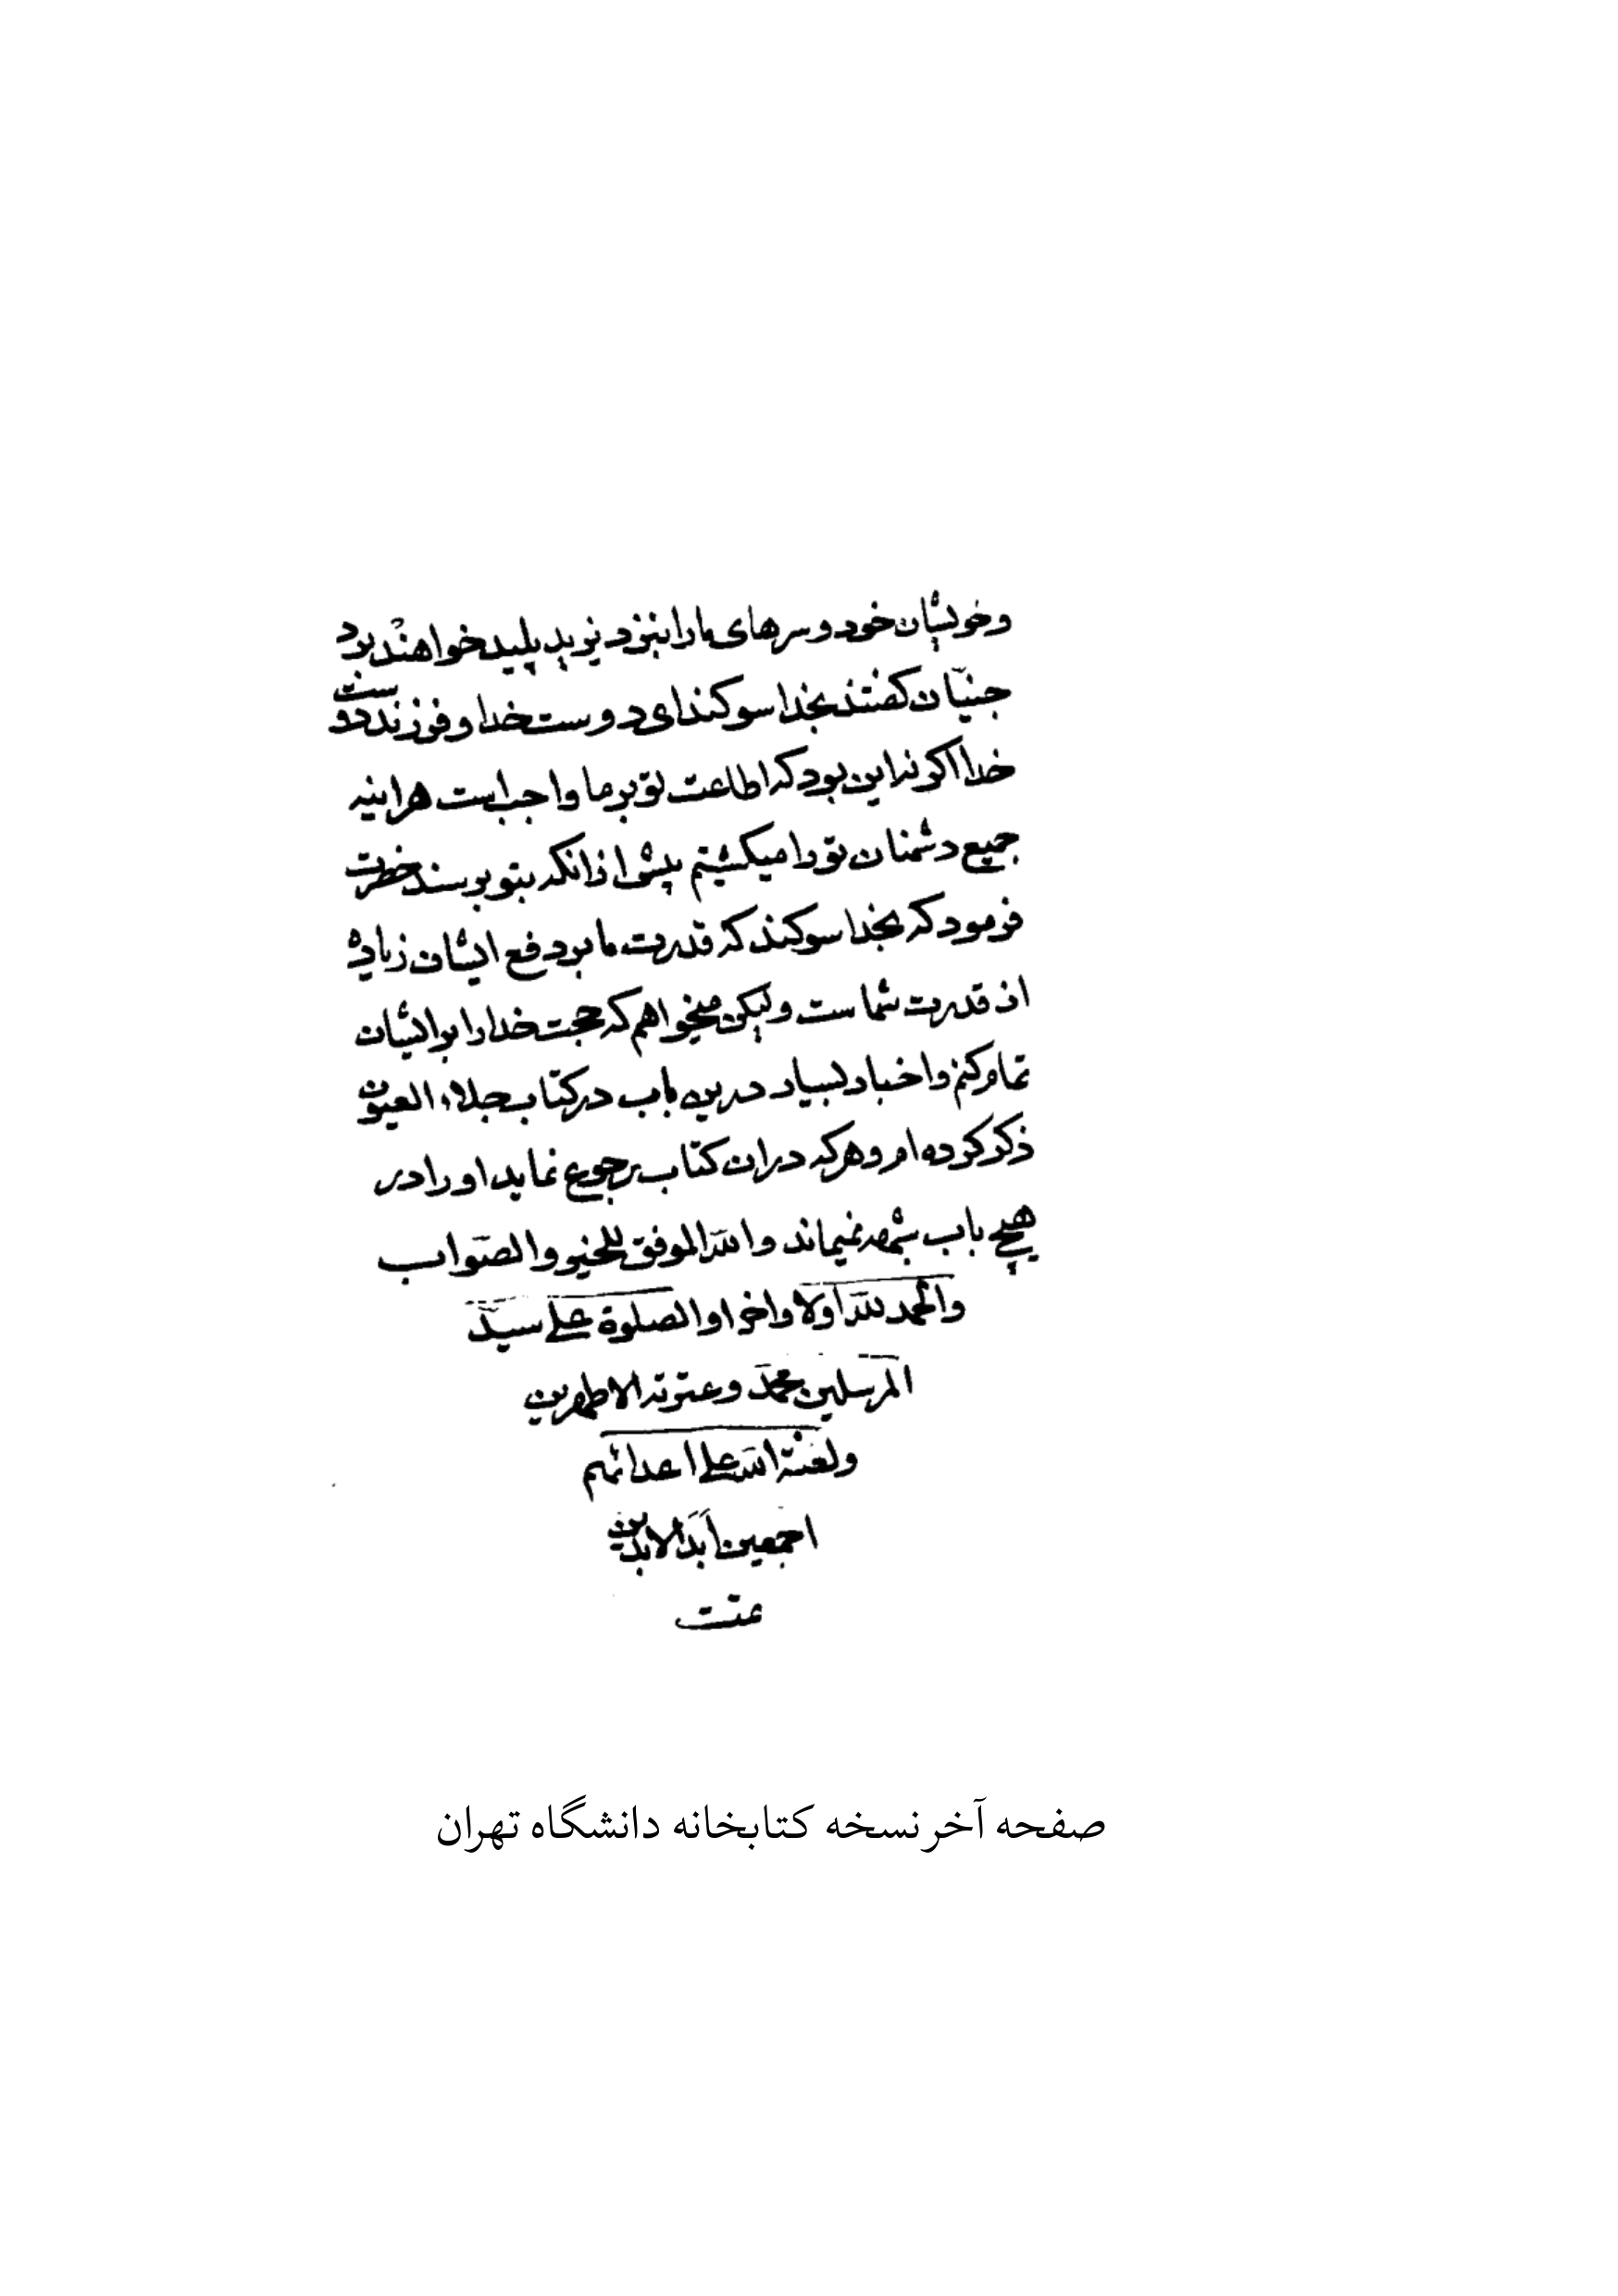 و خویشان خود و سرهای ما را بنزد یزید پلید خواهند برد
جنیّان کفتند بخدا سوکند ای دوست خدا و فرزند دوست
خدا اکر نه این بود که اطاعت تو بر ما واجب است هراینه
جمیع دشمنان تو را میکشتیم پیش از انکه بتو برسند حضرت
فرمود که بخدا سوکند که قدرت ما بر دفع ایشان زیاده
از قدرت شماست ولیکن میخواهم که حجت خدا را بر ایشان
تمام کنم و اخبار بسیار درین باب در کتاب جلاء العیون
ذکر کرده ام و هر که در ان کتاب رجوع نماید او را در
هیچ باب شبهه نمیماند و الله الموفق للخیر و الصّواب
والحمد لله اولا واخرا والصلوة علی سیّد
المرسلین محمّد وعترته الاطهرین
ولعنة الله علی اعدائهم
اجمعین ابد الابدین
تمت
صفحه آخر نسخه کتابخانه دانشگاه تهران